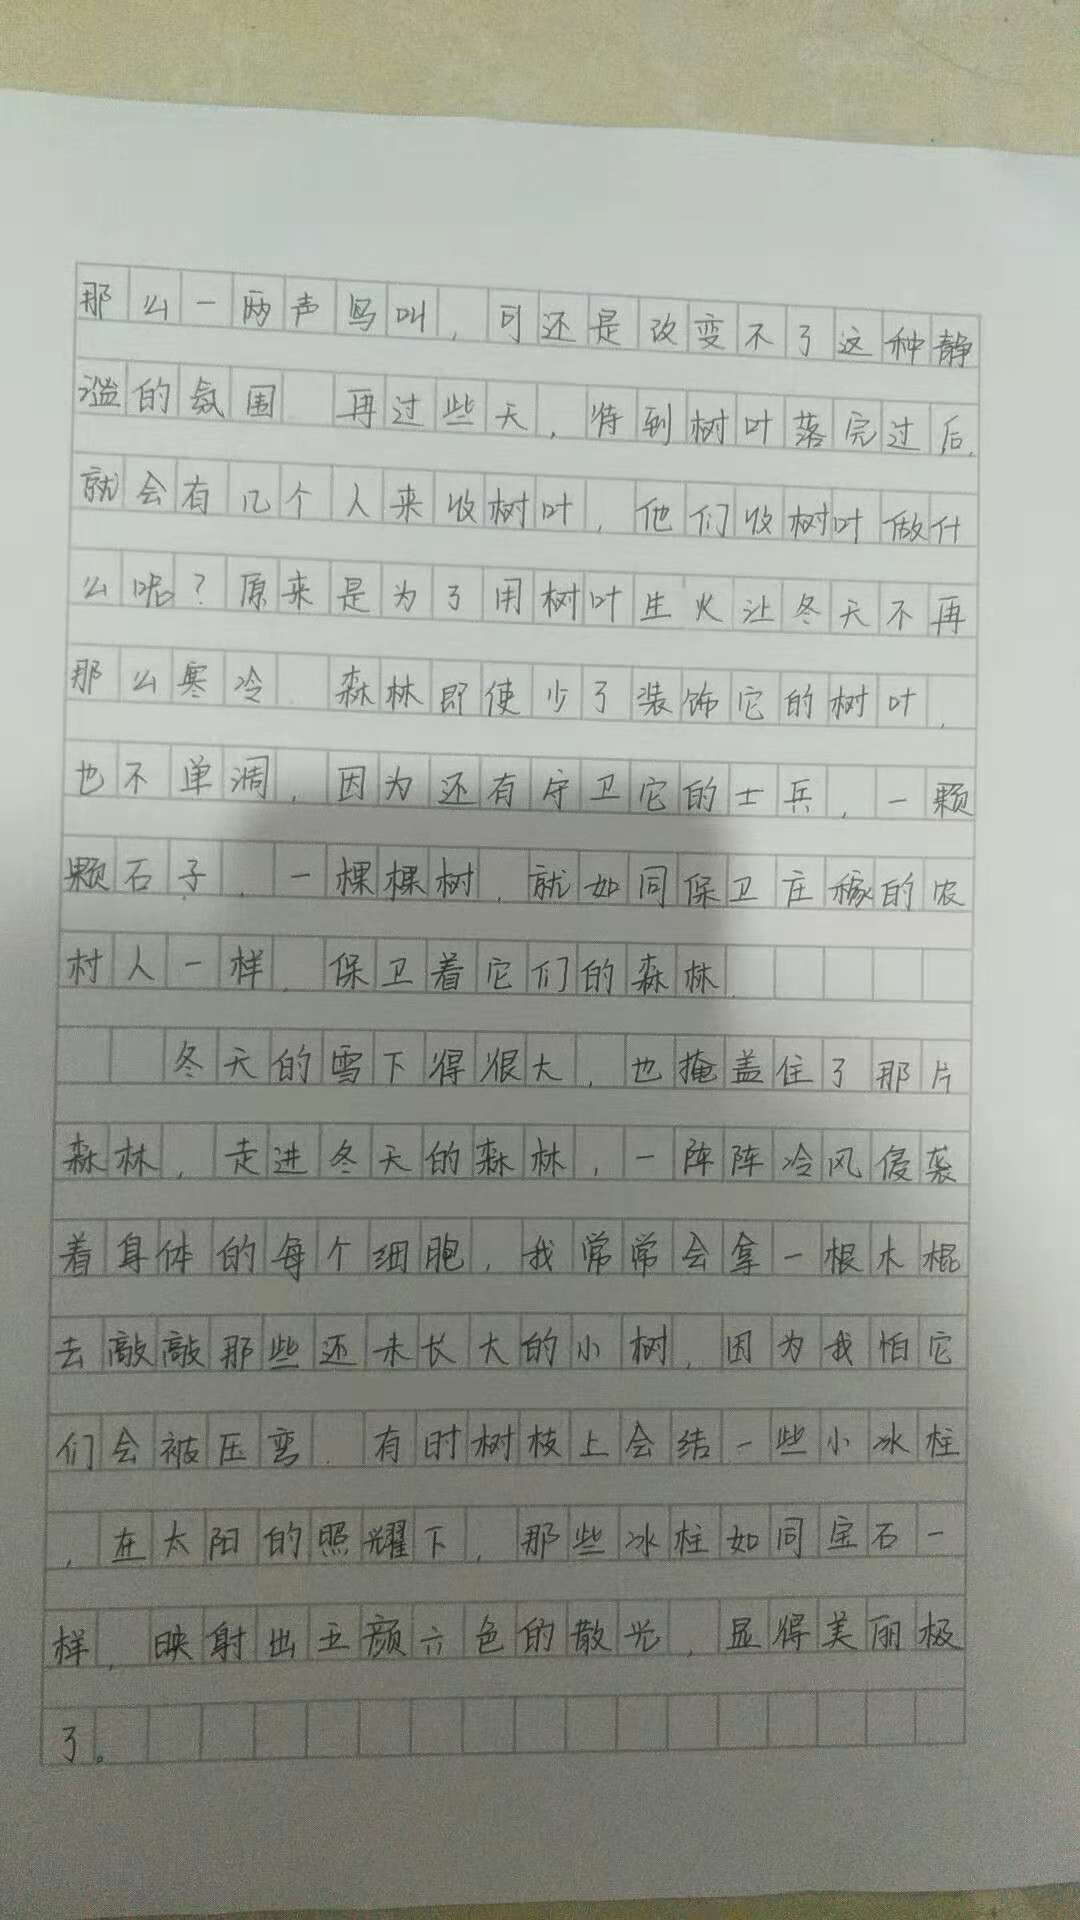 那么一两声鸟叫，可还是改变不了这种静
谧的氛围．再过些天，待到树叶落完过后，
就会有几个人来收树叶，他们收树叶做什
么呢？原来是为了用树叶生火让冬天不再
那么寒冷．森林即使少了装饰它的树叶，
也不单凋，因为还有守卫它的士兵，一颗
颗石子，一棵棵树，就如同保卫庄稼的农
村人一样．保卫着它们的森林．
冬天的雪下得很大，也掩盖住了那片
森林，走进冬天的森林，一阵阵冷风侵袭
着身体的每个细胞，我常常会拿一根木棍
去敲敲那些还未长大的小树，因为我怕它
们会被压弯．有时树枝上会结一些小冰柱
，在太阳的照耀下，那些冰柱如同宝石一
样，映射出五颜六色的散光，显得美丽极
了。